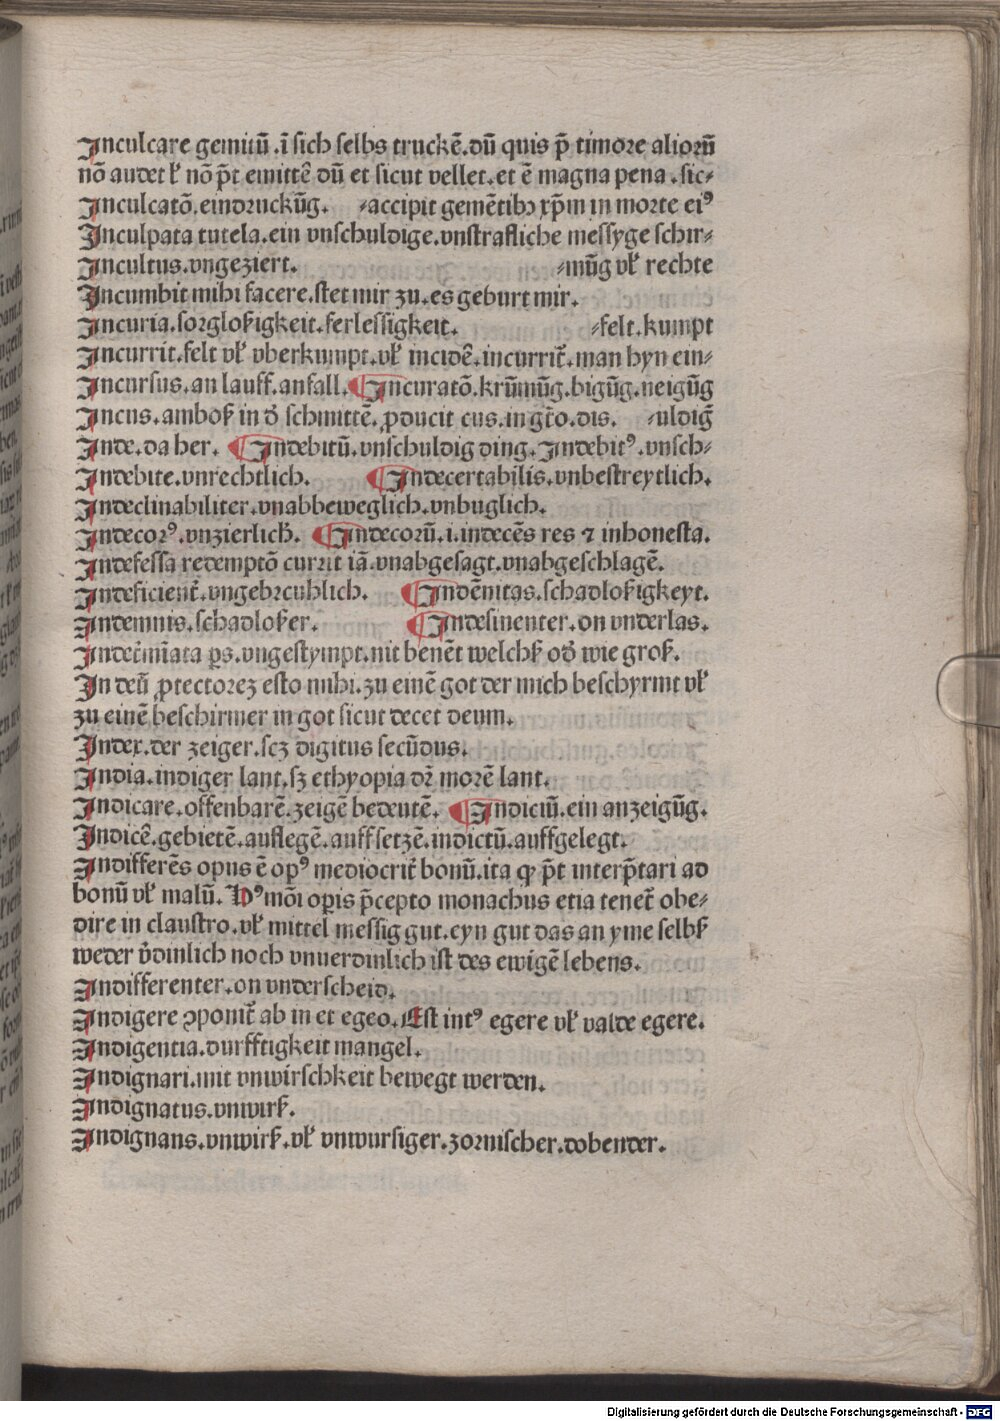 Inculcare gemitū .ī sich selbs truckē. dū quis p̄ timore aliorū
nō audet vł nō p̄t emittē dū et sicut vellet. et ē magna pena . sic⸗
Inculcatō. eindruckūg. ⸗accipit gemētibꝫ xp̄m in morte eiꝰ
Inculpata tutela. ein vnschuldige. vnstrafliche messyge schir⸗
Incultus. vngeziert. ⸗mūg vł rechte
Incumbit mihi facere. stet mir zu. es geburt mir.
Incuria. sorgloßigkeit. ferlessigkeit. ⸗felt. kumpt
Incurrit. felt vł vberkumpt. vł incidē. incurrit̄. man hyn ein⸗
Incursus. an lauff. anfall. ¶ Incuratō. krūmūg. bigūg. neigūg
Incus. amboß in d̄ schmittē. ꝓducit cus. in gt̄o. dis. ⸗uldiḡ
Inde. da her. ¶ Indebitū. vnschuldig ding. Indebitꝰ. vnsch⸗
Indebite. vnrechtlich. ¶ Indecertabilis. vnbestreytlich.
Indeclinabiliter. vnabbeweglich. vnbuglich.
Indecorꝰ. vnzierlich. ¶ Indecorū. i. indecēs res ⁊ inhonesta.
Indefessa redemptō currit iā. vnabgesagt. vnabgeschlagē.
Indeficient̄. vngebrcuhlich. ¶ Indēnitas. schadloßigkeyt.
Indemnis. schadloßer. ¶ Indesinenter. on vnderlas.
Indet̄mīata ꝑs. vngestympt. nit benēt welchß od̄ wie groß.
In deū ꝓtectorez esto mihi. zu einē got der mich beschyrmt vł
zu einē beschirmer in got sicut decet deum.
Index. der zeiger. scꝫ digitus secūdus.
India. indiger lant. sꝫ ethyopia dr̄ morē lant.
Indicare. offenbarē. zeigē bedeutē. ¶ Indiciū. ein anzeigūg.
Indicē. gebietē. auflegē. auff setzē. indictū. auffgelegt.
Indifferēs opus ē opꝰ mediocrit̄ bonū. ita ꝙ p̄t interp̄tari ad
bonū vł malū. Hꝰmōi oꝑis p̄cepto monachus etia tenet̄ obe⸗
dire in claustro. vł mittel messig gut. eyn gut das an yme selbß
weder v̄dinlich noch vnuerdinlich ist des ewigē lebens.
Indifferenter. on vnderscheid.
Indigere ꝯponit̄ ab in et egeo. Est intꝰ egere vł valde egere.
Indigentia. durfftigkeit mangel.
Indignari. mit vnwirschkeit bewegt werden.
Indignatus. vnwirß.
Indignans. vnwirß. vł vnwursiger. zornischer. dobender.
Digitalisierung gefördert durch die Deutsche Forschungsgemeinschaft - DFG